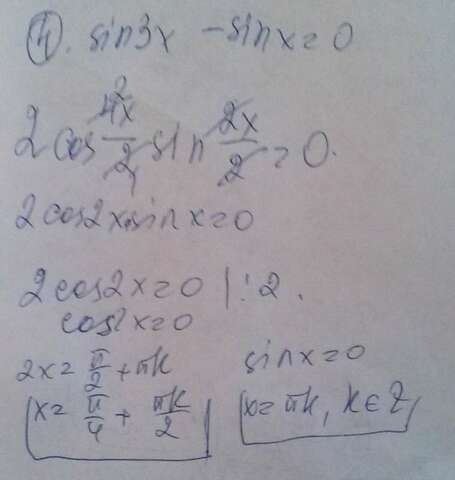 4. sin3x - sinx = 0
2 cos 4x/2 sin 2x/2 = 0.
2cos2x·sinx = 0
2cos2x = 0 | : 2.
cos2x = 0
2x = π/2 + πk
sinx = 0
x = π/4 + πk/2
x = πk, k ∈ Z